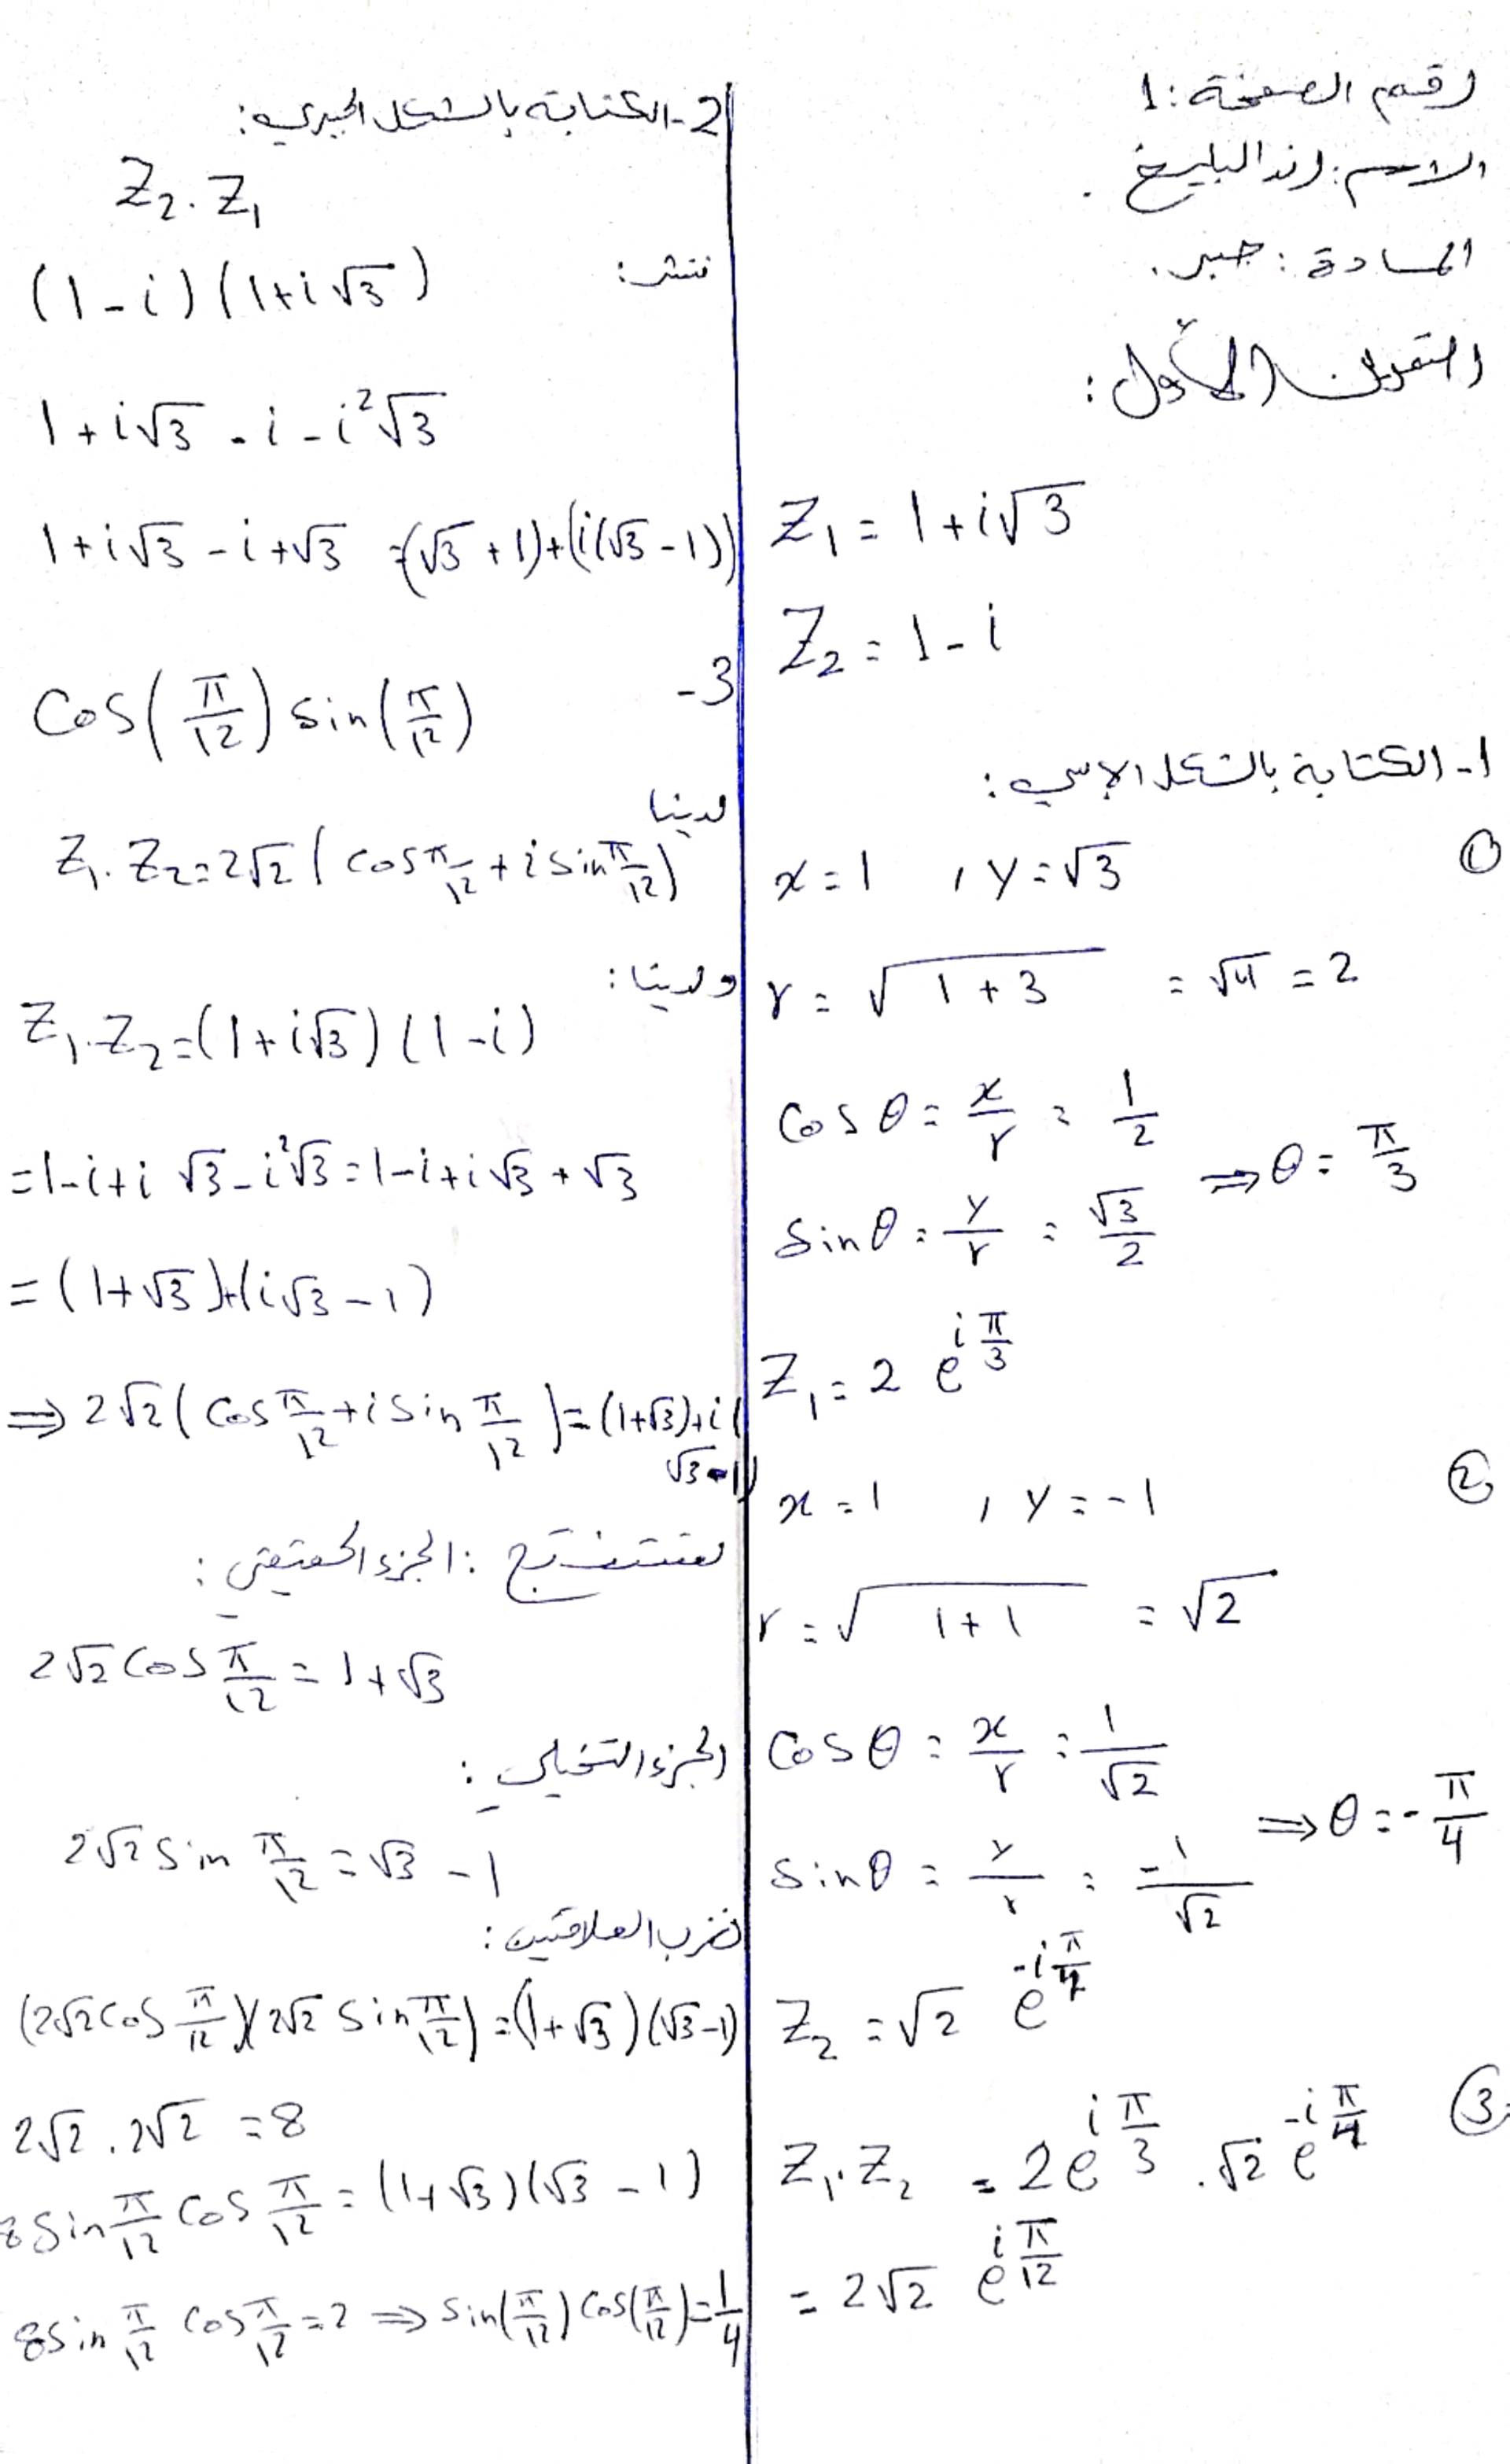 رقم الصفحة: 1
الاسم: رند البليخ .
المادة: جبر.
التمرين الأول:
Z₁ = 1 + i√3
Z₂ = 1 - i
1- الكتابة بالشكل الاسي:
① x = 1 , y = √3
r = √(1 + 3) = √4 = 2
cos θ = x/r = 1/2
sin θ = y/r = √3/2 ⇒ θ = π/3
Z₁ = 2 e^(i π/3)
② x = 1 , y = -1
r = √(1 + 1) = √2
cos θ = x/r = 1/√2
sin θ = y/r = -1/√2 ⇒ θ = -π/4
Z₂ = √2 e^(-i π/4)
③ Z₁ . Z₂ = 2 e^(i π/3) . √2 e^(-i π/4)
= 2√2 e^(i π/12)
2- الكتابة بالشكل الجبري:
Z₂ . Z₁
ننشر: (1 - i) (1 + i√3)
1 + i√3 - i - i²√3
1 + i√3 - i + √3 = (√3 + 1) + (i(√3 - 1))
3- cos(π/12) sin(π/12)
لدينا
Z₁ . Z₂ = 2√2 ( cos π/12 + i sin π/12 )
ولدينا:
Z₁ . Z₂ = (1 + i√3) (1 - i)
= 1 - i + i √3 - i²√3 = 1 - i + i √3 + √3
= (1 + √3) + (i√3 - 1)
⇒ 2√2 ( cos π/12 + i sin π/12 ) = (1 + √3) + i (
√3 - 1)
نستنتج: الجزء الحقيقي:
2√2 cos π/12 = 1 + √3
الجزء التخيلي:
2√2 sin π/12 = √3 - 1
نضرب العلاقتين:
(2√2 cos π/12)(2√2 sin π/12) = (1 + √3) (√3 - 1)
2√2 . 2√2 = 8
8 sin π/12 cos π/12 = (1 + √3) (√3 - 1)
8 sin π/12 cos π/12 = 2 ⇒ sin(π/12) cos(π/12) = 1/4